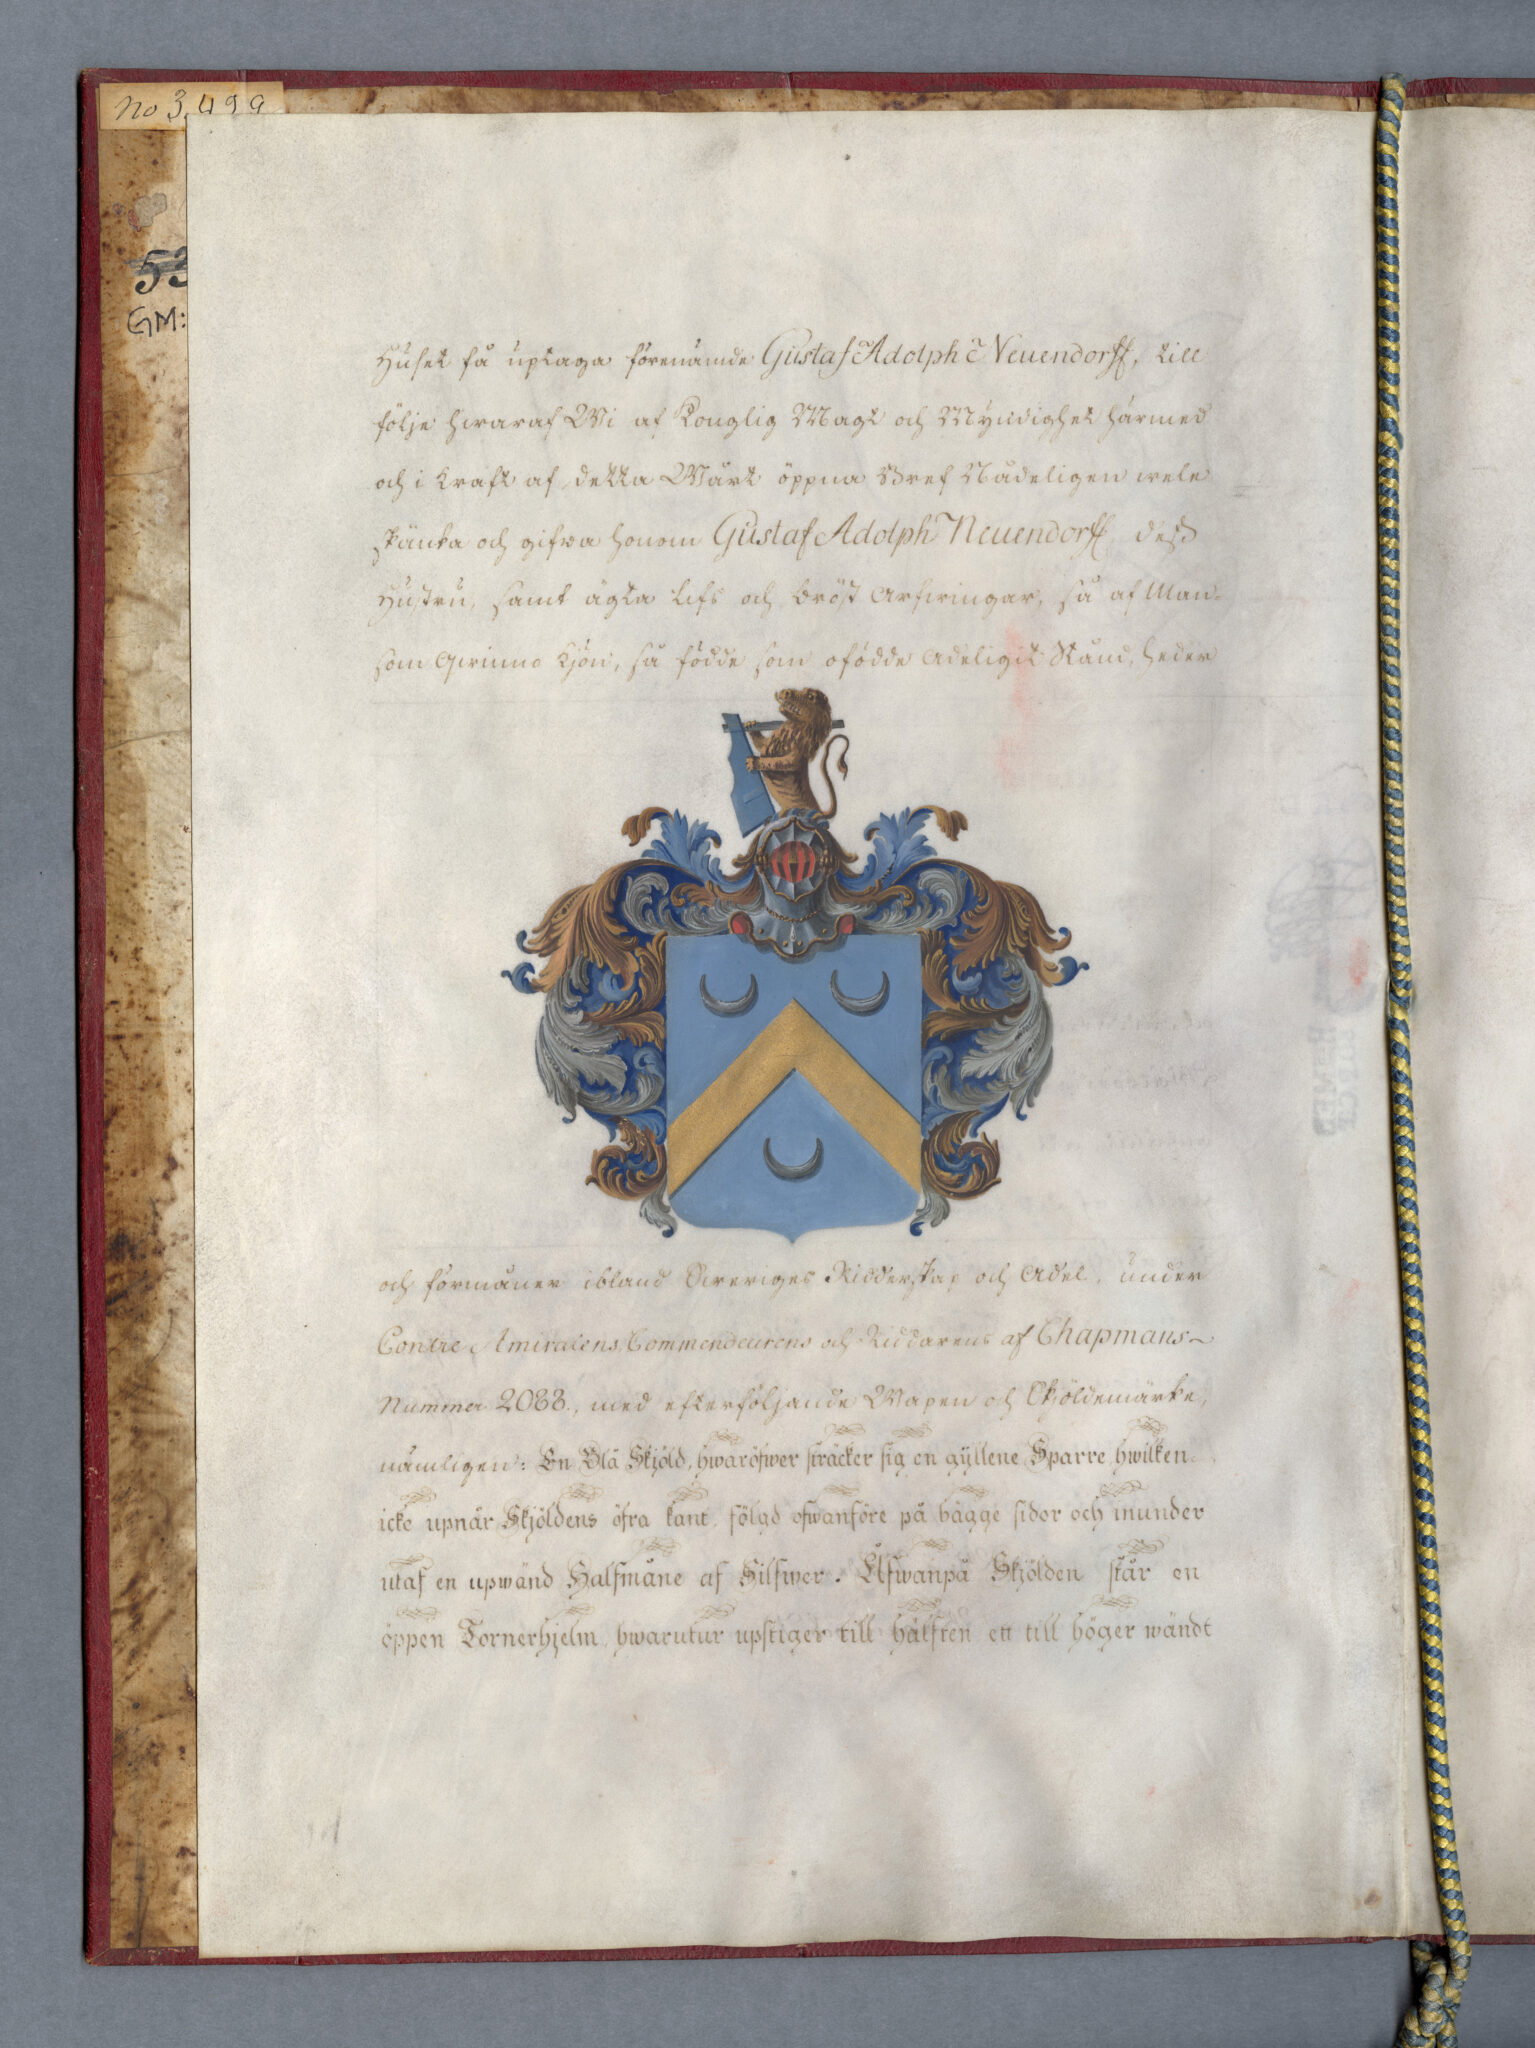 No 3,499
53
GM:
Huset få uptaga förenämde Gustaf Adolph Neuendorff, till
följe hwaraf Wi af Konglig Magt och Myndighet härmed
och i kraft af detta Wårt öppna Bref Nådeligen wele
skänka och gifwa honom Gustaf Adolph Neuendorff, dess
Hustru, samt ägta Lifs och Bröst Arfwingar, så af Man-
som Qwinno Kjön, så födde som ofödde Adeligit Stånd, heder
och förmåner ibland Sweriges Ridderskap och Adel, under
Contre Amiralens, Commendeurens och Riddarens af Chapmans
Nummer 2088., med efterföljande Wapen och Skjöldemärke,
nämligen: En Blå Skjöld, hwaröfwer sträcker sig en gyllene Sparre hwilken
icke upnår Skjöldens öfra kant, fölgd ofwanföre på bägge sidor och inunder
utaf en upwänd Halfmåne af Silfwer. Åfwanpå Skjölden står en
öppen Tornerhjelm, hwarutur upstiger till hälften ett till höger wändt